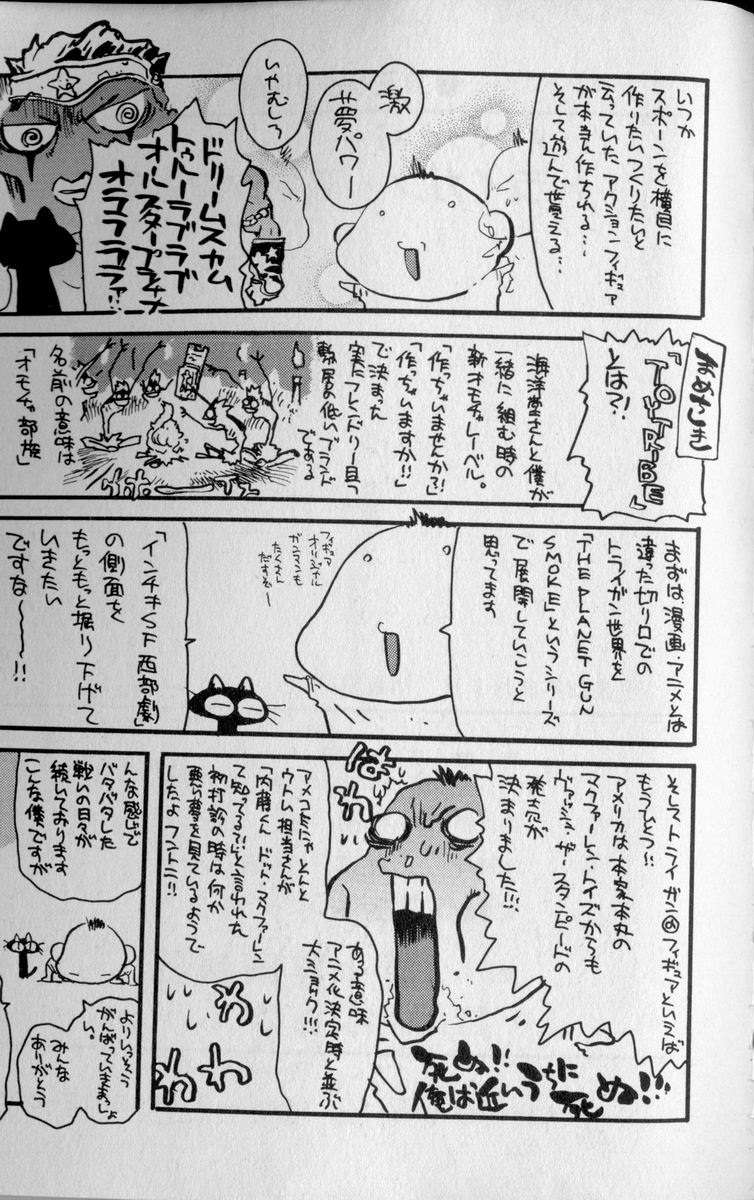 いつか
スポーンを横目に
作りたいつくりたいと
云っていたアクションフィギュア
が本当に作られる…
そして遊んで貰える…
激
夢パワー
いやむしろ
ドリームスカム
トゥルーラブラブ
オールスタープラチナ
オララララァ!!
あめたき
「TOYTRIBE」
とは?!
海洋堂さんと僕が
一緒に組む時の
新オモチャレーベル。
「作っちゃいませんか?!」
「作っちゃいますか!!」
で決まった
実にフレンドリー且つ
敷居の低いブランド
である
名前の意味は
「オモチャ部族」
まずは漫画・アニメとは
違った切り口での
トライガン世界を
「THE PLANET GUN
SMOKE」というシリーズ
で展開していこうと
思ってます
フィギュア
オリジナル
ガンマンも
たくさん
だすぞ〜
「インチキSF西部劇」
の側面を
もっともっと掘り下げて
いきたい
ですな〜〜!!
そしてトライガン フィギュアといえば
もうひとつ…
アメリカは本家本丸の
マクファーレン・トイズからも
ヴァッシュ・ザ・スタンピードの
発売が
決まりました!!!
ほわ
ある意味
アニメ化決定時と並ぶ
大ショック!!!
アメコミにゃとんと
ウトい担当さんが
「内藤くん トッド・マクファーレン
て知ってる?」と言われた
初打診の時は何か
悪い夢を見ているようで
したよフントニ!!
わわわ
死ぬ!!
俺は近いうちに
死ぬ!!
んな感じで
バタバタした
戦いの日々が
続いております
こんな僕ですが
よりいっそう
がんばっていきまっしょ
い。
みんな
ありがとう